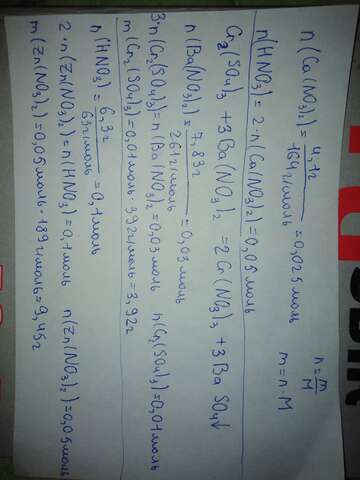 n(Ca(NO₃)₂) = 4,1г / 164г/моль = 0,025моль
n = m/M
n(HNO₃) = 2·n(Ca(NO₃)₂) = 0,05моль
m = n·M
Cr₂(SO₄)₃ + 3Ba(NO₃)₂ = 2Cr(NO₃)₃ + 3BaSO₄↓
n(Ba(NO₃)₂) = 7,83г / 261г/моль = 0,03моль
3·n(Cr₂(SO₄)₃) = n(Ba(NO₃)₂ = 0,03моль n(Cr₂(SO₄)₃) = 0,01моль
m(Cr₂(SO₄)₃ = 0,01моль·392г/моль = 3,92г
n(HNO₃) = 6,3г / 63г/моль = 0,1моль
2·n(Zn(NO₃)₂) = n(HNO₃) = 0,1моль n(Zn(NO₃)₂) = 0,05моль
m(Zn(NO₃)₂) = 0,05моль·189г/моль = 9,45г